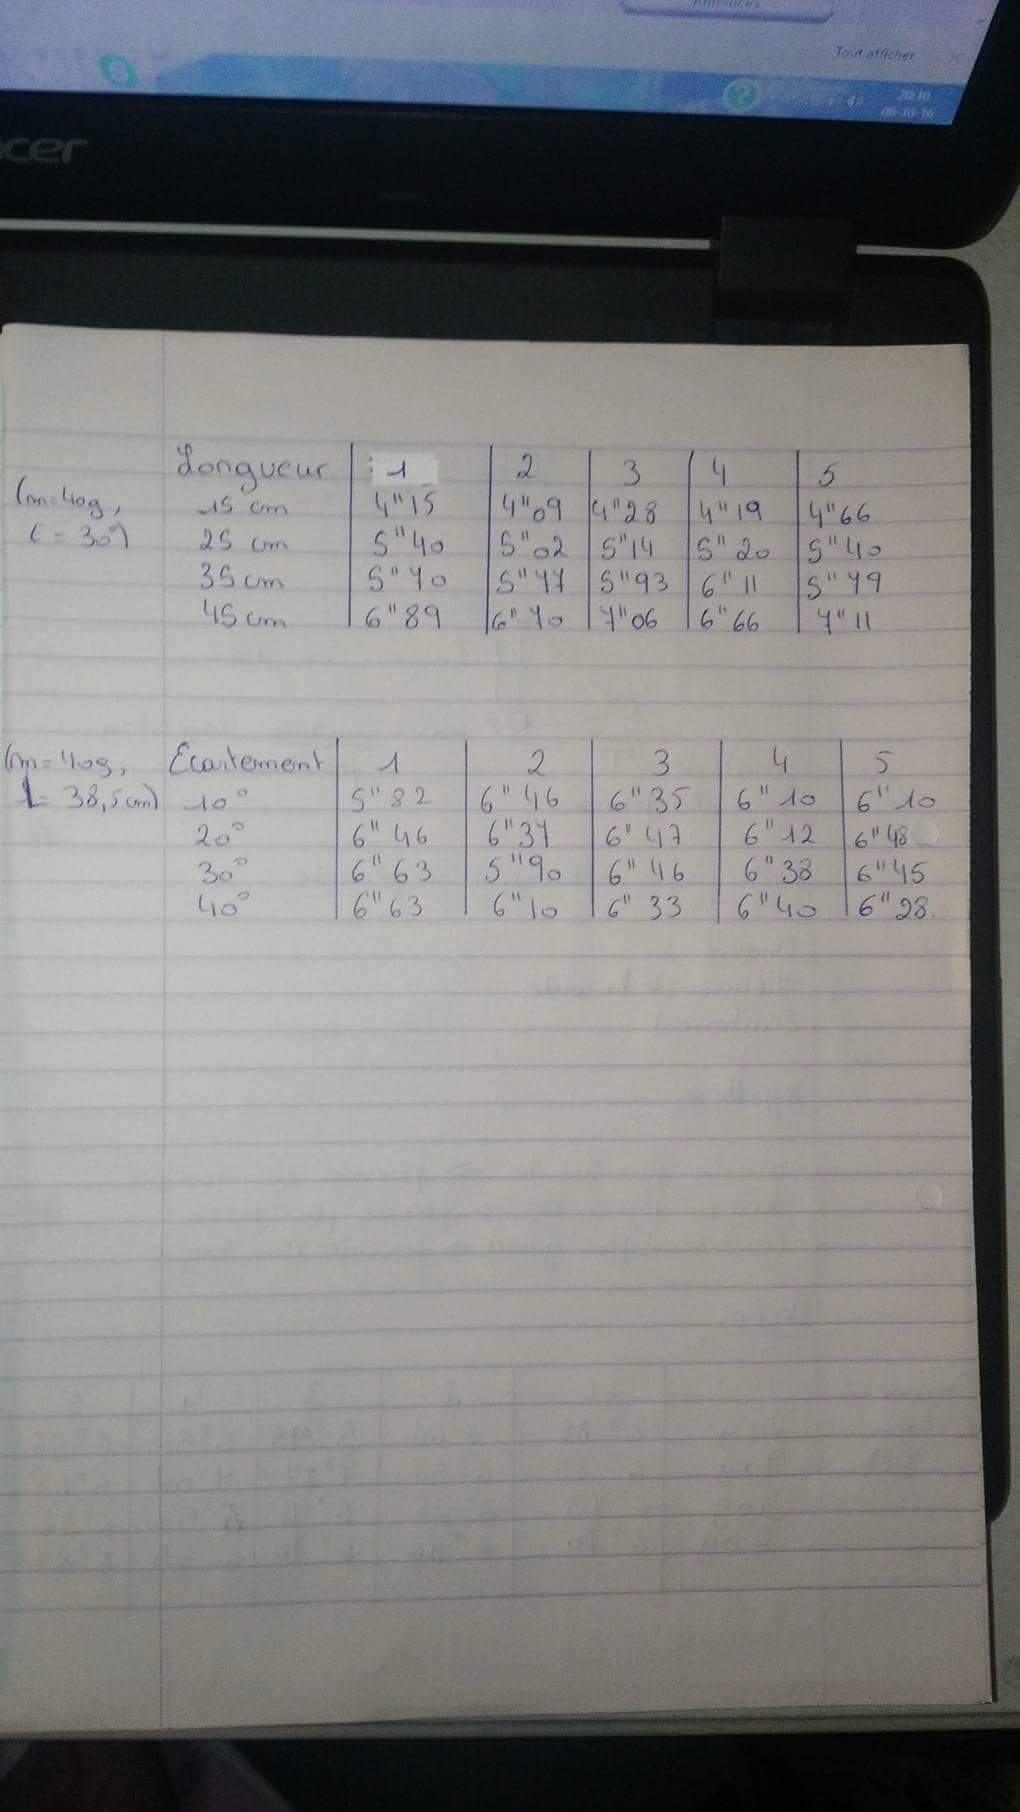 Annonces
Tout afficher
20:10
acer
Longueur 1 2 3 4 5
(m=40g, 15 cm 4"15 4"09 4"28 4"19 4"66
l = 30°) 25 cm 5"40 5"02 5"14 5"20 5"40
35 cm 5"70 5"77 5"93 6"11 5"79
45 cm 6"89 6"70 7"06 6"66 7"11
(m=40g, Ecartement 1 2 3 4 5
L = 38,5cm) 10° 5"82 6"46 6"35 6"10 6"10
20° 6"46 6"37 6"47 6"12 6"48
30° 6"63 5"90 6"46 6"38 6"45
40° 6"63 6"10 6"33 6"40 6"28.